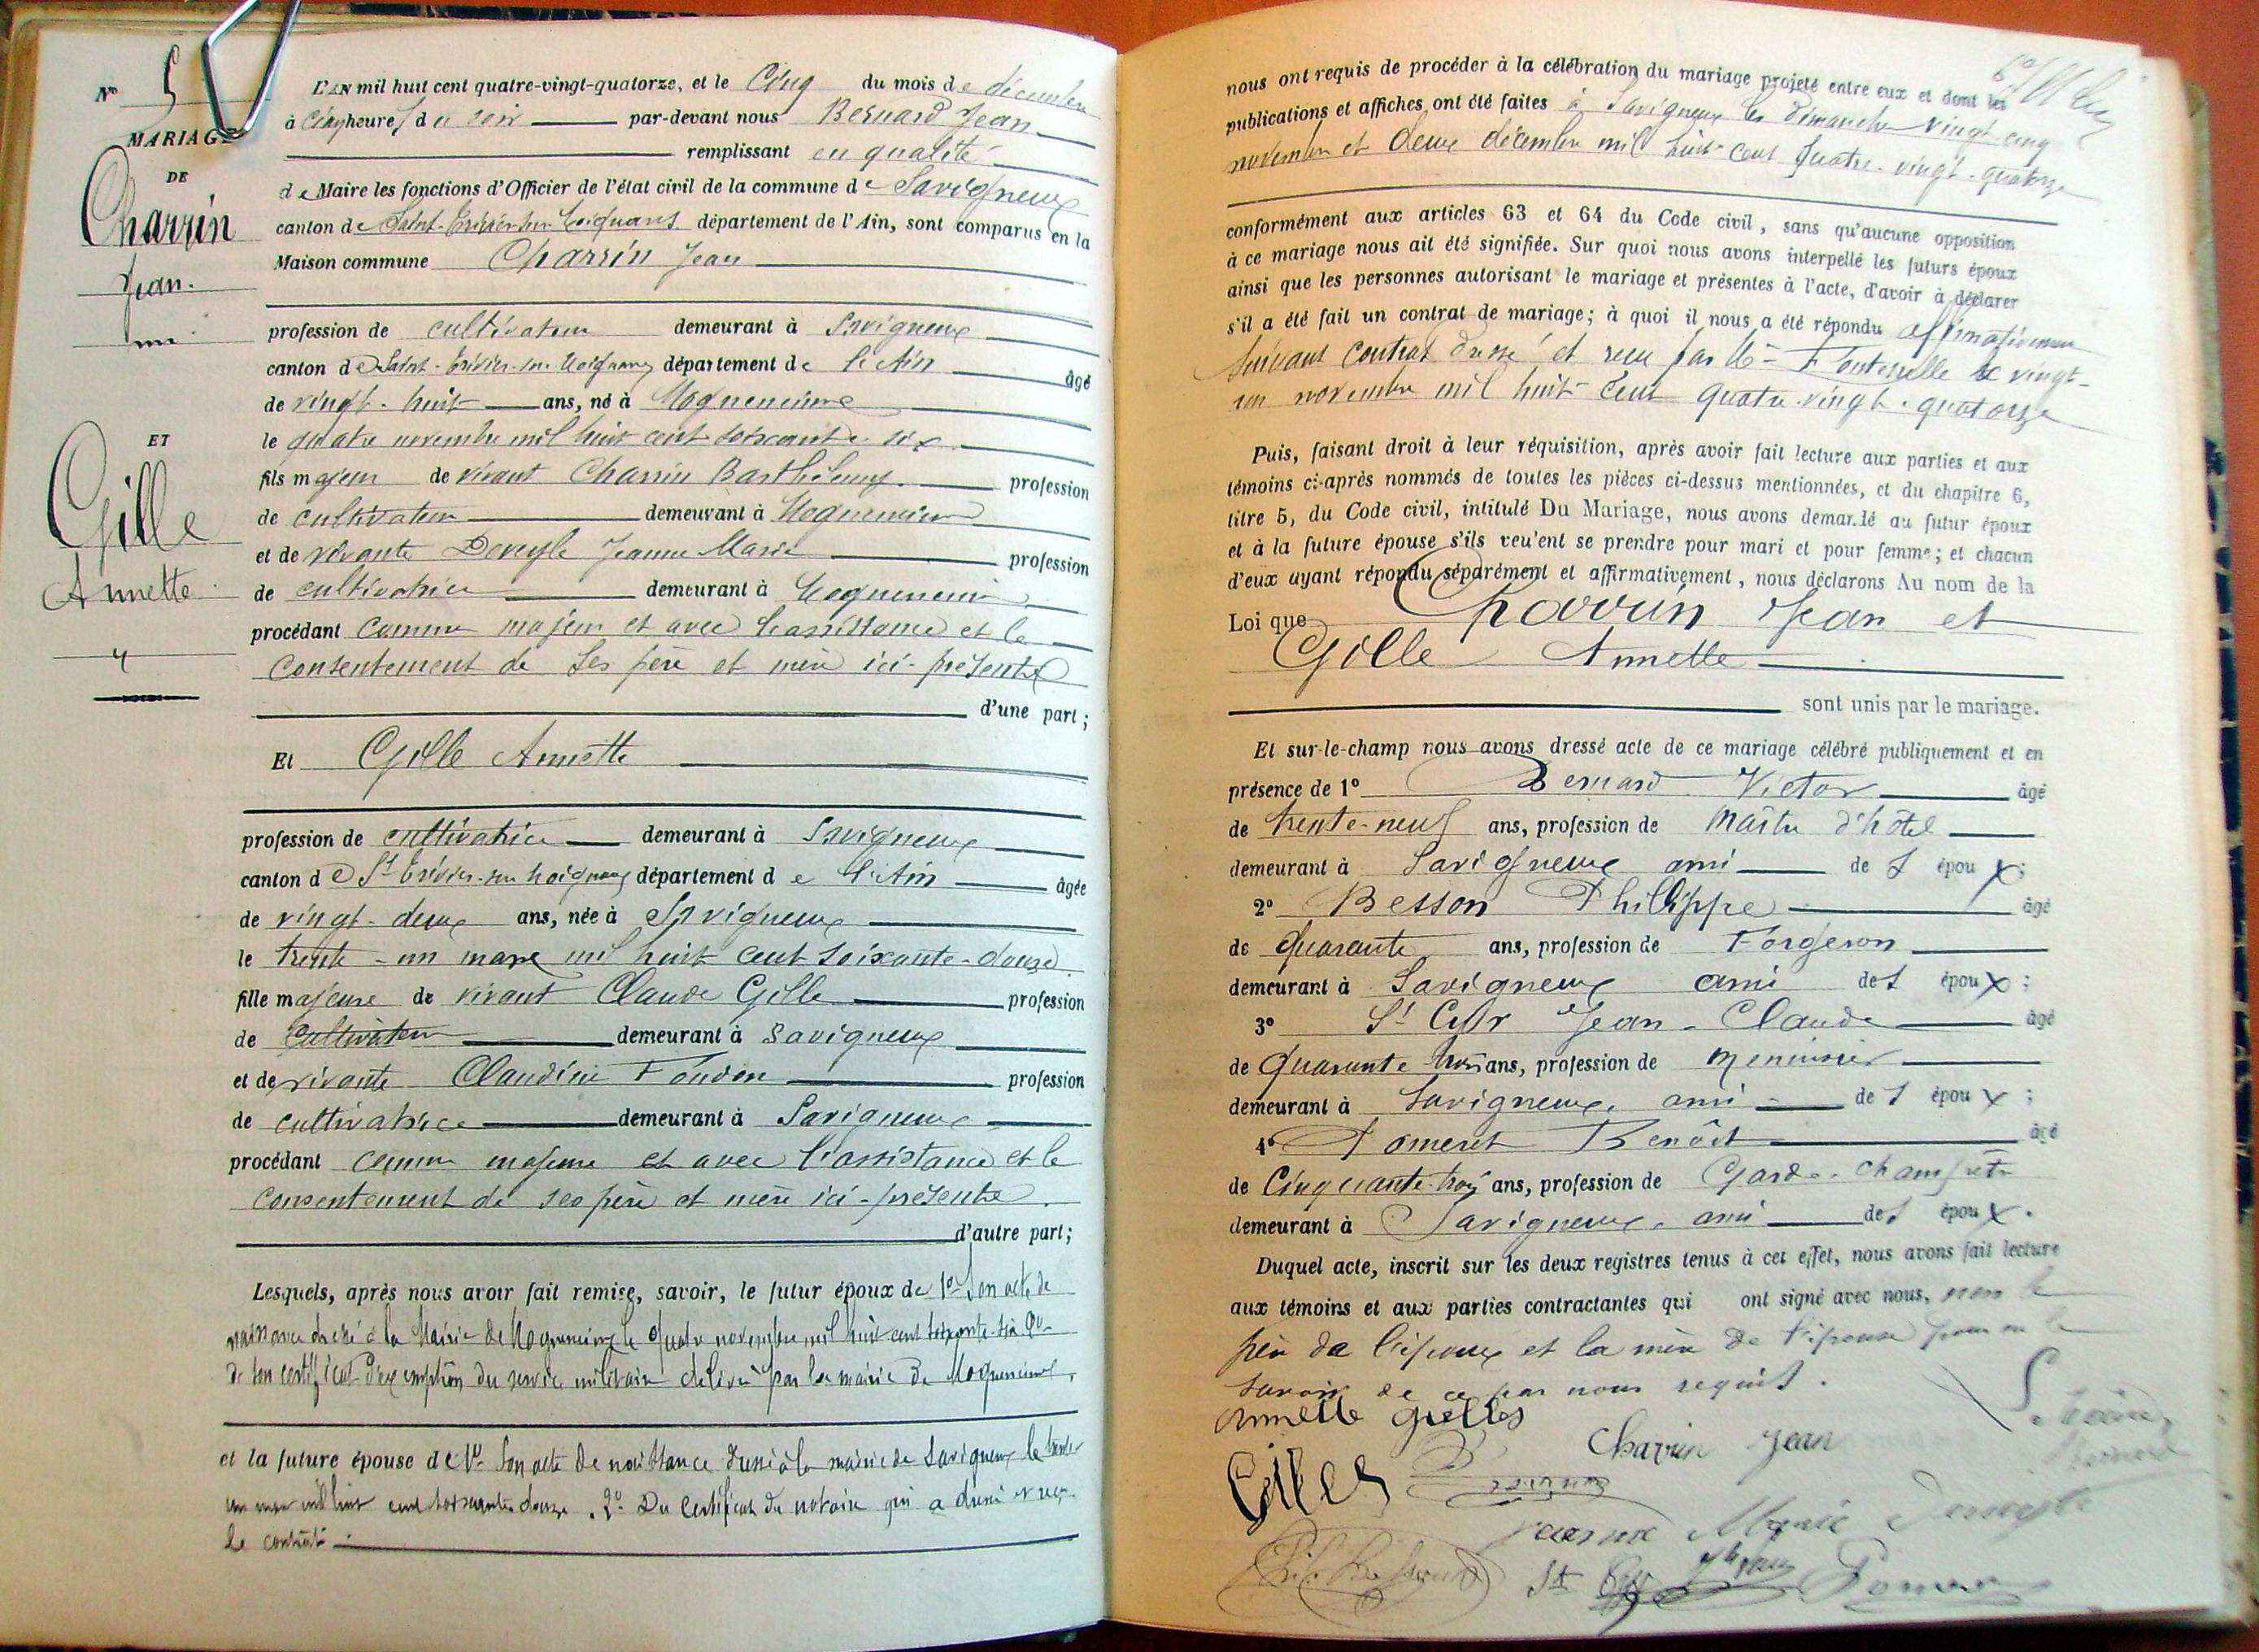 Nº 5
MARIAGE
DE
Charrin
Jean.
ET
Gille
Annette
L'AN mil huit cent quatre-vingt-quatorze, et le Cinq du mois de décembre
à Cinq heures du soir par-devant nous Bernard Jean
remplissant en qualité
de Maire les fonctions d'Officier de l'état civil de la commune de Savigneux
canton de Saint-Trivier-sur-Moignans département de l'Ain, sont comparus en la
Maison commune Charrin Jean
profession de cultivateur demeurant à Savigneux
canton de Saint-Trivier-sur-Moignans département de l'Ain âgé
de vingt-huit ans, né à Mogneneins
le quatre novembre mil huit cent soixante-six
fils majeur de vivant Charrin Barthélemy profession
de cultivateur demeurant à Mogneneins
et de vivante Deveyle Jeanne Marie profession
de cultivatrice demeurant à Mogneneins
procédant comme majeur et avec l'assistance et le
consentement de ses père et mère ici-présents
d'une part;
Et Gille Annette
profession de cultivatrice demeurant à Savigneux
canton de St Trivier-sur-Moignans département de l'Ain âgée
de vingt-deux ans, née à Savigneux
le trente-un mars mil huit cent soixante-douze
fille majeure de vivant Claude Gille profession
de cultivateur demeurant à Savigneux
et de vivante Claudine profession
de cultivatrice demeurant à Savigneux
procédant comme majeure et avec l'assistance et le
consentement de ses père et mère ici-présents
d'autre part;
Lesquels, après nous avoir fait remise, savoir, le futur époux de 1º Son acte de
naissance dressé à la Mairie de Mogneneins le quatre novembre mil huit cent soixante-six 2º-
de son certificat d'exemption du service militaire délivré par la mairie de Mogneneins.
et la future épouse de 1º Son acte de naissance dressé à la mairie de Savigneux le trente
un mars mil huit cent soixante douze. 2º Du certificat du notaire qui a dressé et reçu
le contrat.
nous ont requis de procéder à la célébration du mariage projeté entre eux et dont les
publications et affiches ont été faites à Savigneux les dimanches vingt cinq
novembre et deux décembre mil huit cent quatre-vingt-quatorze
conformément aux articles 63 et 64 du Code civil, sans qu'aucune opposition
à ce mariage nous ait été signifiée. Sur quoi nous avons interpellé les futurs époux
ainsi que les personnes autorisant le mariage et présentes à l'acte, d'avoir à déclarer
s'il a été fait un contrat de mariage; à quoi il nous a été répondu affirmativement
suivant contrat dressé et reçu par Me Fontenelle le vingt-
un novembre mil huit cent quatre-vingt-quatorze
Puis, faisant droit à leur réquisition, après avoir fait lecture aux parties et aux
témoins ci-après nommés de toutes les pièces ci-dessus mentionnées, et du chapitre 6,
titre 5, du Code civil, intitulé Du Mariage, nous avons demandé au futur époux
et à la future épouse s'ils veulent se prendre pour mari et pour femme; et chacun
d'eux ayant répondu séparément et affirmativement, nous déclarons Au nom de la
Loi que Charrin Jean et
Gille Annette
sont unis par le mariage.
Et sur-le-champ nous avons dressé acte de ce mariage célébré publiquement et en
présence de 1º Bernard Victor âgé
de trente-neuf ans, profession de Maître d'hôtel
demeurant à Savigneux ami des époux;
2º Besson Philippe âgé
de quarante ans, profession de Forgeron
demeurant à Savigneux ami des époux;
3º St Cyr Jean-Claude âgé
de quarante trois ans, profession de Menuisier
demeurant à Savigneux, ami des époux;
4º Pomeret Benoît âgé
de Cinquante-trois ans, profession de Garde-champêtre
demeurant à Savigneux, ami des époux.
Duquel acte, inscrit sur les deux registres tenus à cet effet, nous avons fait lecture
aux témoins et aux parties contractantes qui ont signé avec nous, non le
père de l'époux et la mère de l'épouse pour ne le
savoir de ce par nous requis.
Annette Gilles
Charrin Jean
Gilles
Jeanne Marie Deveyle
St Cyr